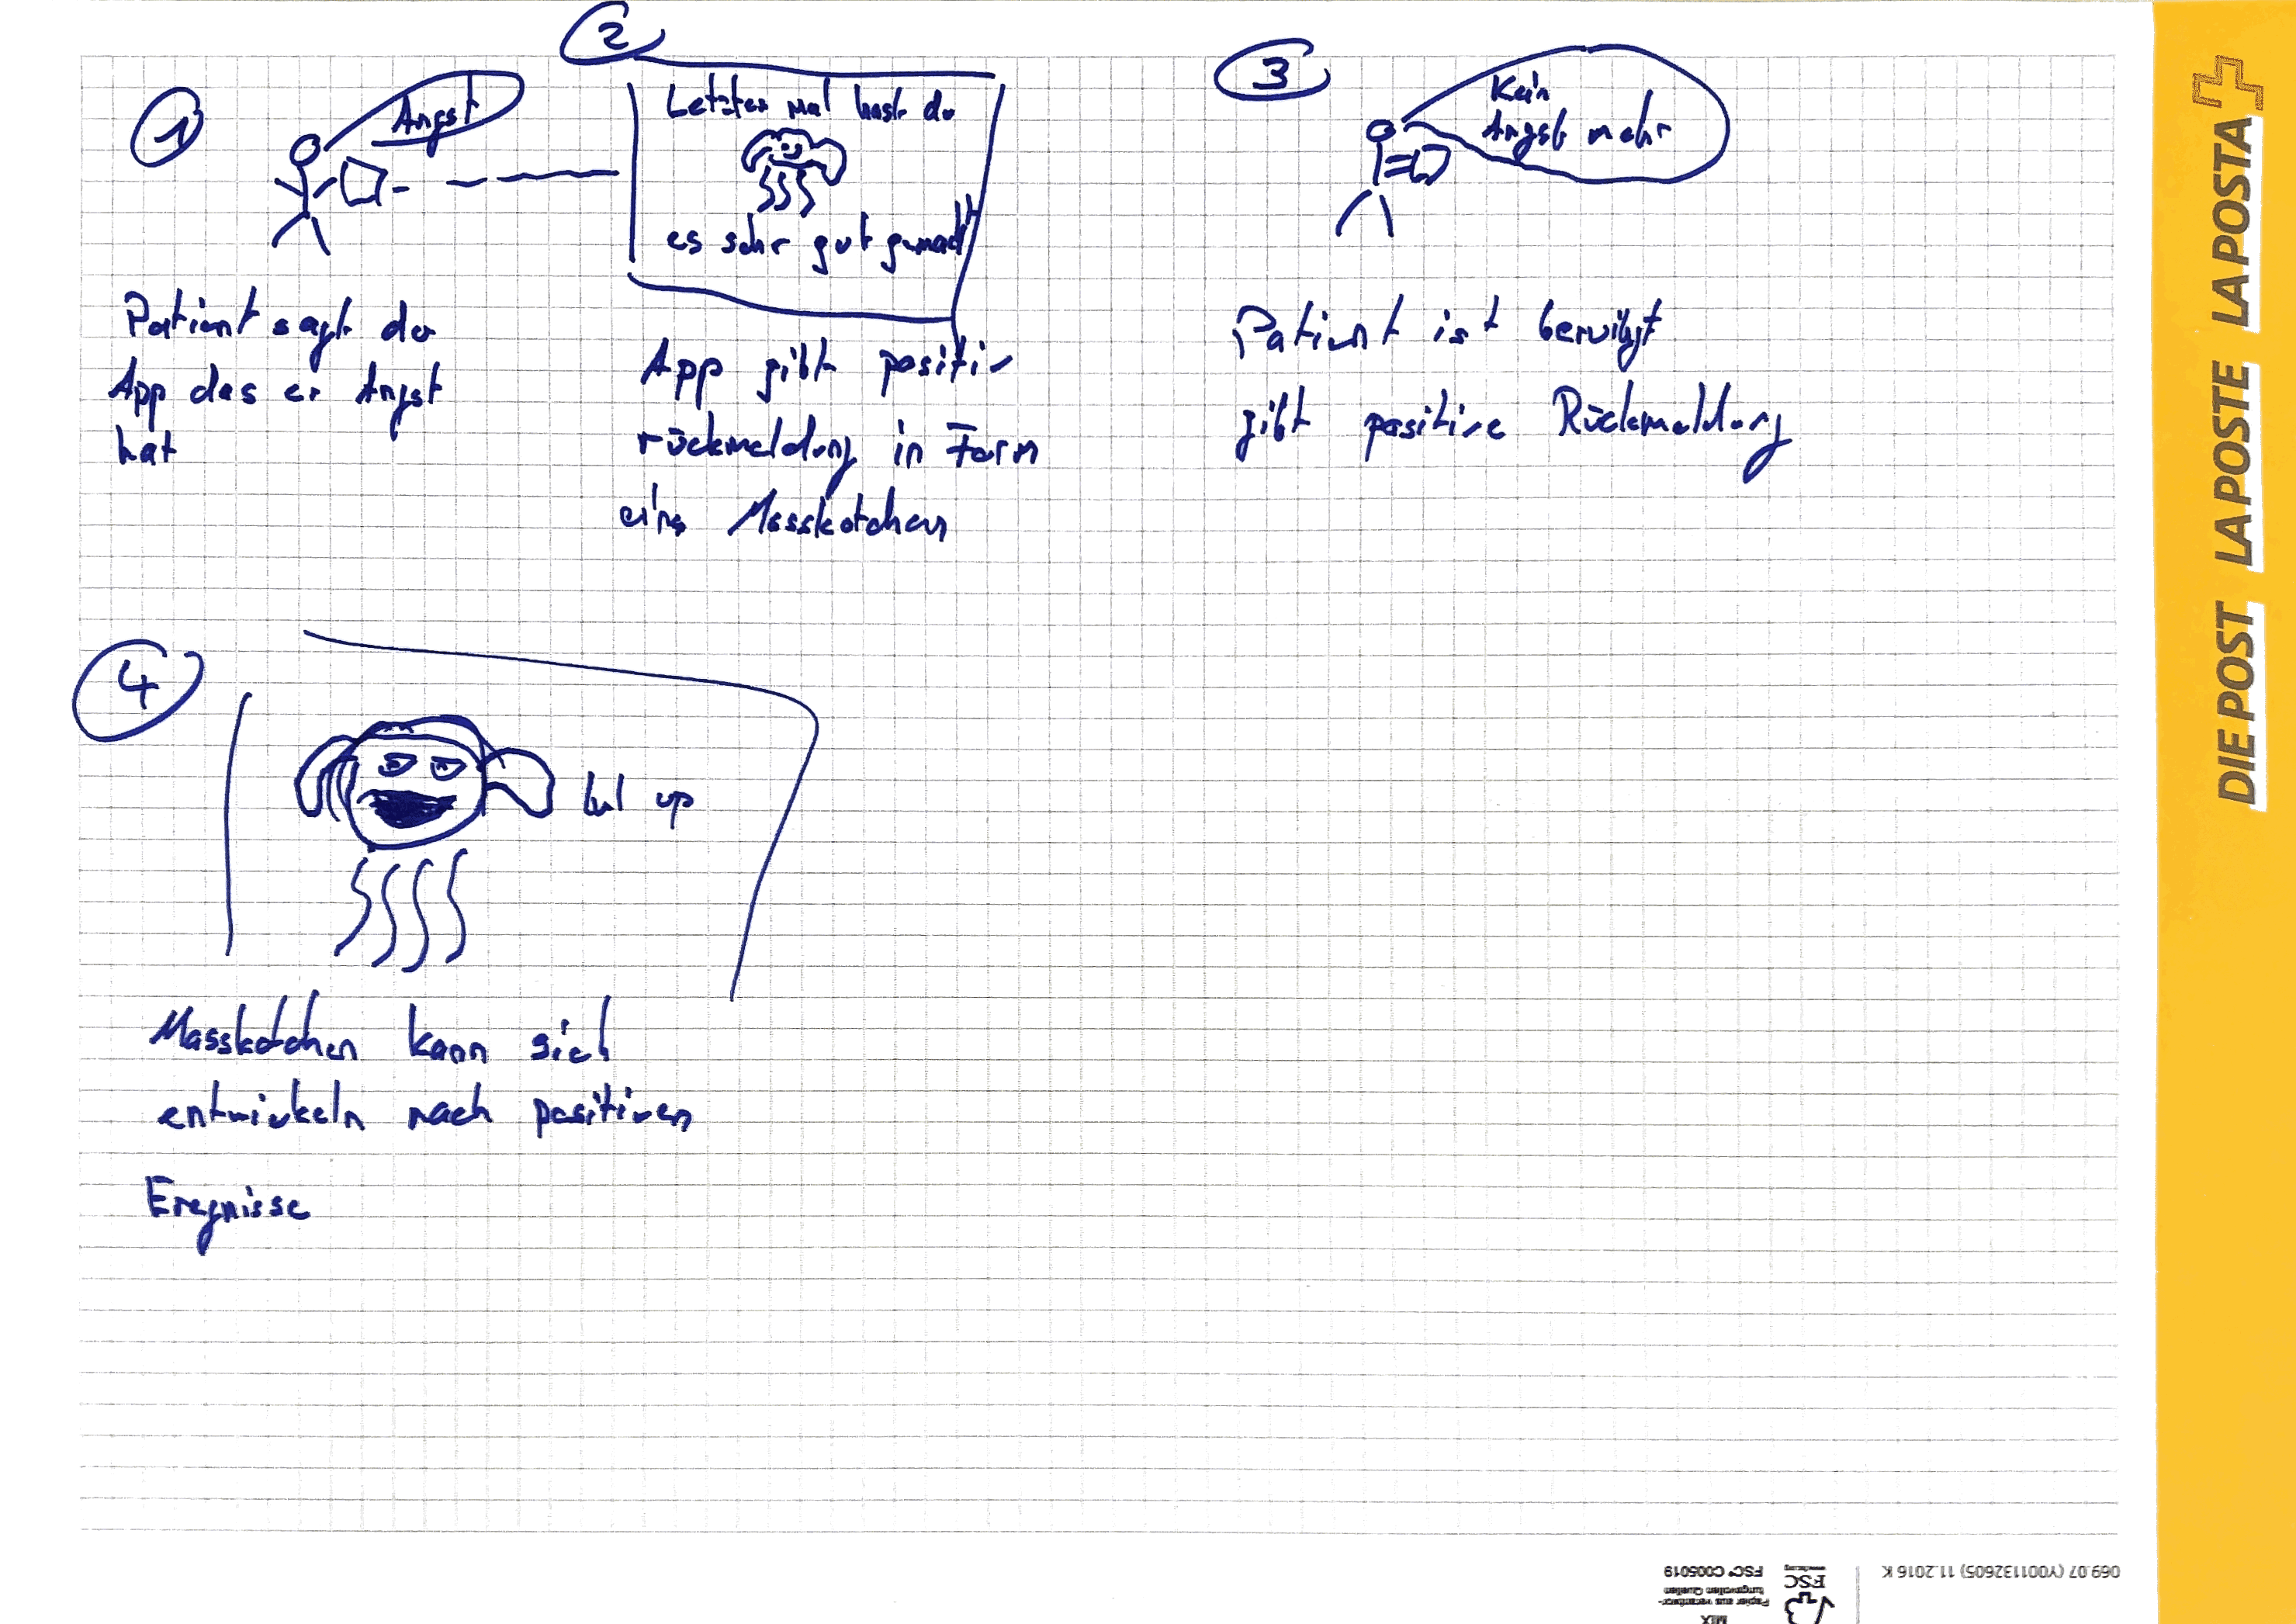 1
Angst
Patient sagt der
App das er Angst
hat
2
Letztes mal hast du
es sehr gut gemacht
App gibt positiv
rückmeldung in Form
eins Masskotchen
3
Kein
Angst mehr
Patient ist beruhigt
gibt positive Rückmeldung
4
lvl up
Masskotchen kann sich
entwickeln nach positiven
Eregnisse
DIE POST LA POSTE LA POSTA
069.07 (Y001132605) 11.2016 K
FSC
MIX
Papier aus verantwor-
tungsvollen Quellen
FSC® C005019